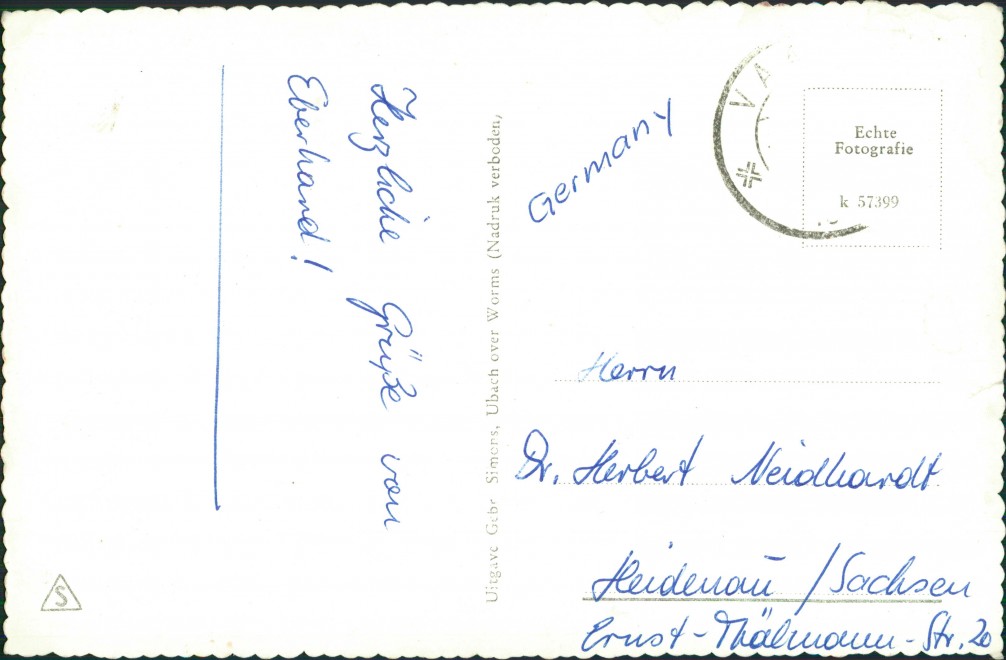 Herzliche Grüße von
Eberhard!
Uitgave Gebr Simons, Ubach over Worms (Nadruk verboden,
S
Germany
VA
Echte
Fotografie
k 57399
Herrn
Dr. Herbert Neidhardt
Heidenau / Sachsen
Ernst-Thälmann-Str. 20